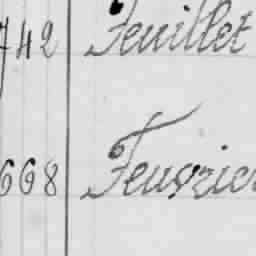 742 Feuillet
668 Feuvrier